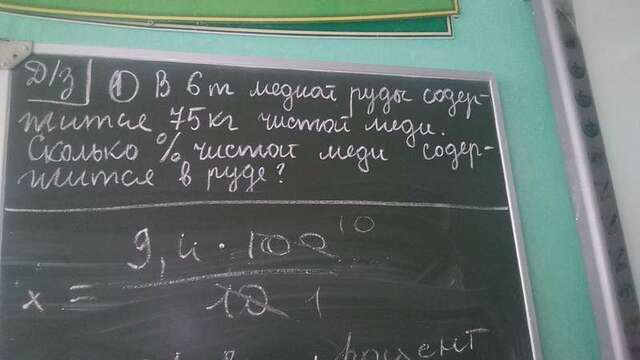 Д/З ① В 6 т медной руды содер-
жится 75 кг чистой меди.
Сколько % чистой меди содер-
жится в руде?
9,4 · 100 10
x = 
10 1
процент